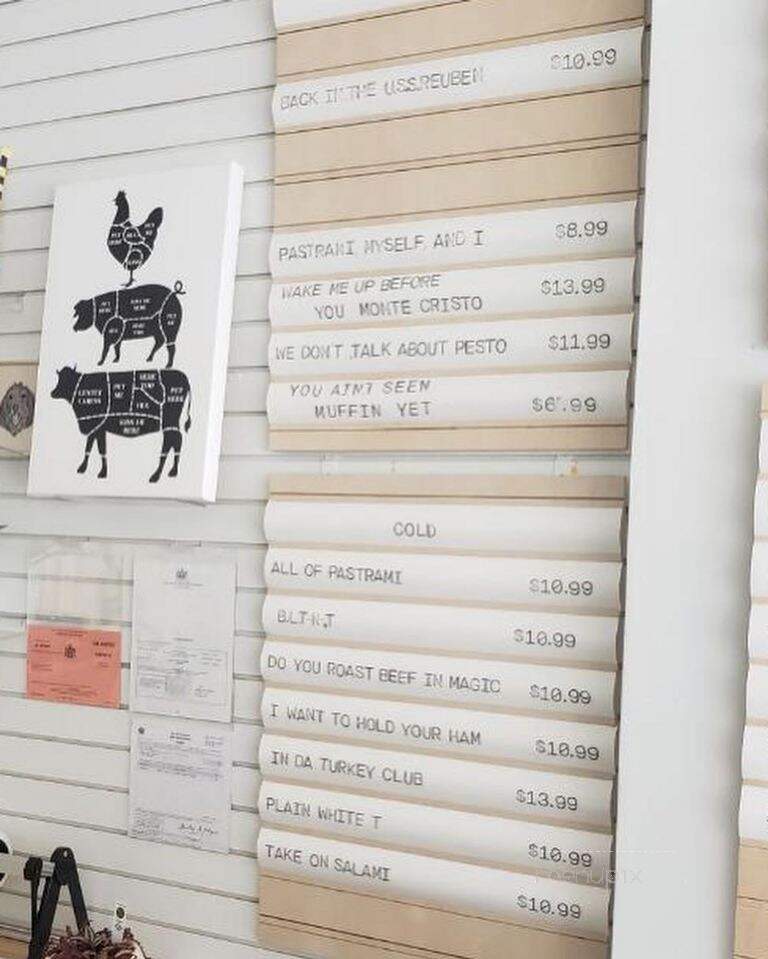 BACK IN THE U.S.S.REUBEN $10.99
PASTRAMI, MYSELF, AND I $8.99
WAKE ME UP BEFORE
YOU MONTE CRISTO $13.99
WE DON'T TALK ABOUT PESTO $11.99
YOU AIN'T SEEN
MUFFIN YET $6.99
COLD
ALL OF PASTRAMI $10.99
B.L.T-N-T $10.99
DO YOU ROAST BEEF IN MAGIC $10.99
I WANT TO HOLD YOUR HAM $10.99
IN DA TURKEY CLUB $13.99
PLAIN WHITE T $10.99
TAKE ON SALAMI $10.99
menupix